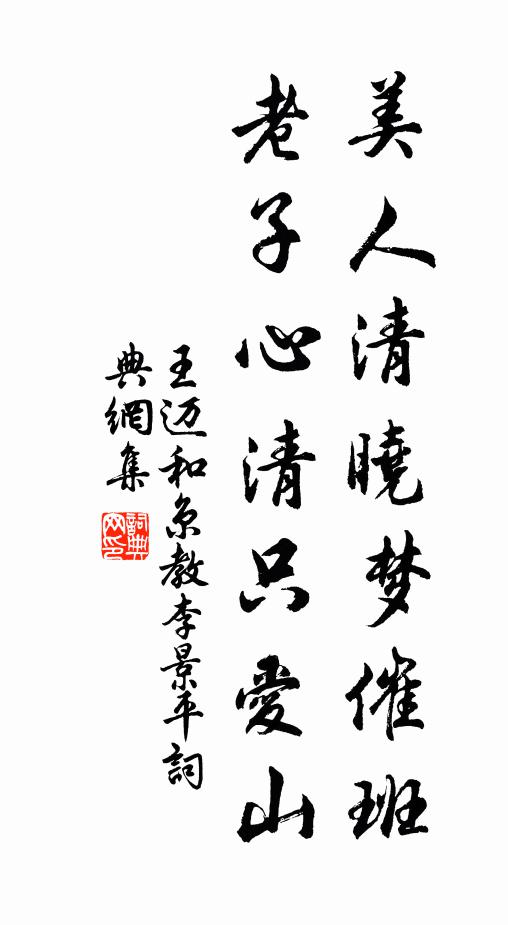 美人清曉梦催班
老子心清只愛山
王迈和京教李景平詞
典網集
詞典
网印